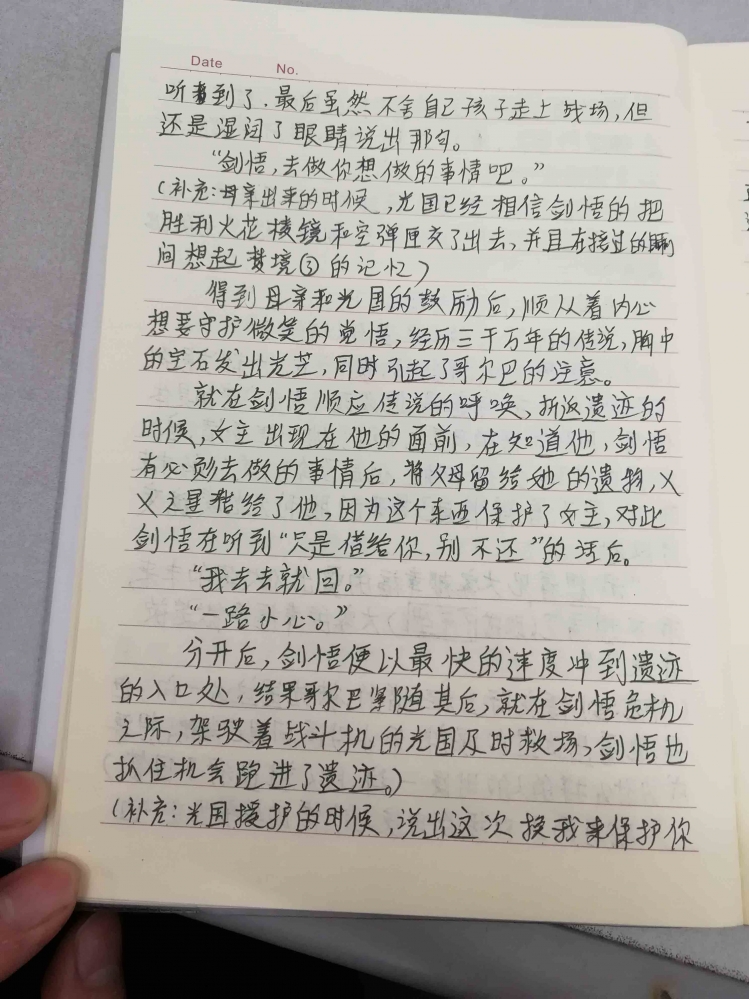 Date
No.
听到了.最后虽然不舍自己孩子走上战场,但
还是湿润了眼睛说出那句。
“剑悟,去做你想做的事情吧。”
(补充:母亲出来的时候,光国已经相信剑悟的把
胜利火花棱镜和空弹匣交了出去,并且在接过的瞬
间想起梦境③的记忆)
得到母亲和光国的鼓励后,顺从着内心
想要守护微笑的觉悟,经历三千万年的传说,胸中
的宝石发出光芒,同时引起了哥尔巴的注意。
就在剑悟顺应传说的呼唤、折返遗迹的
时候,女主出现在他的面前,在知道他,剑悟
有必须去做的事情后,将父母留给她的遗物,乂
乂之星借给了他,因为这个东西保护了女主,对此
剑悟在听到“只是借给你,别不还”的话后。
“我去去就回。”
“一路小心。”
分开后,剑悟便以最快的速度冲到遗迹
的入口处,结果哥尔巴紧随其后,就在剑悟危机
之际,架驶着战斗机的光国及时救场,剑悟也
抓住机会跑进了遗迹。)
(补充:光国援护的时候,说出这次换我来保护你